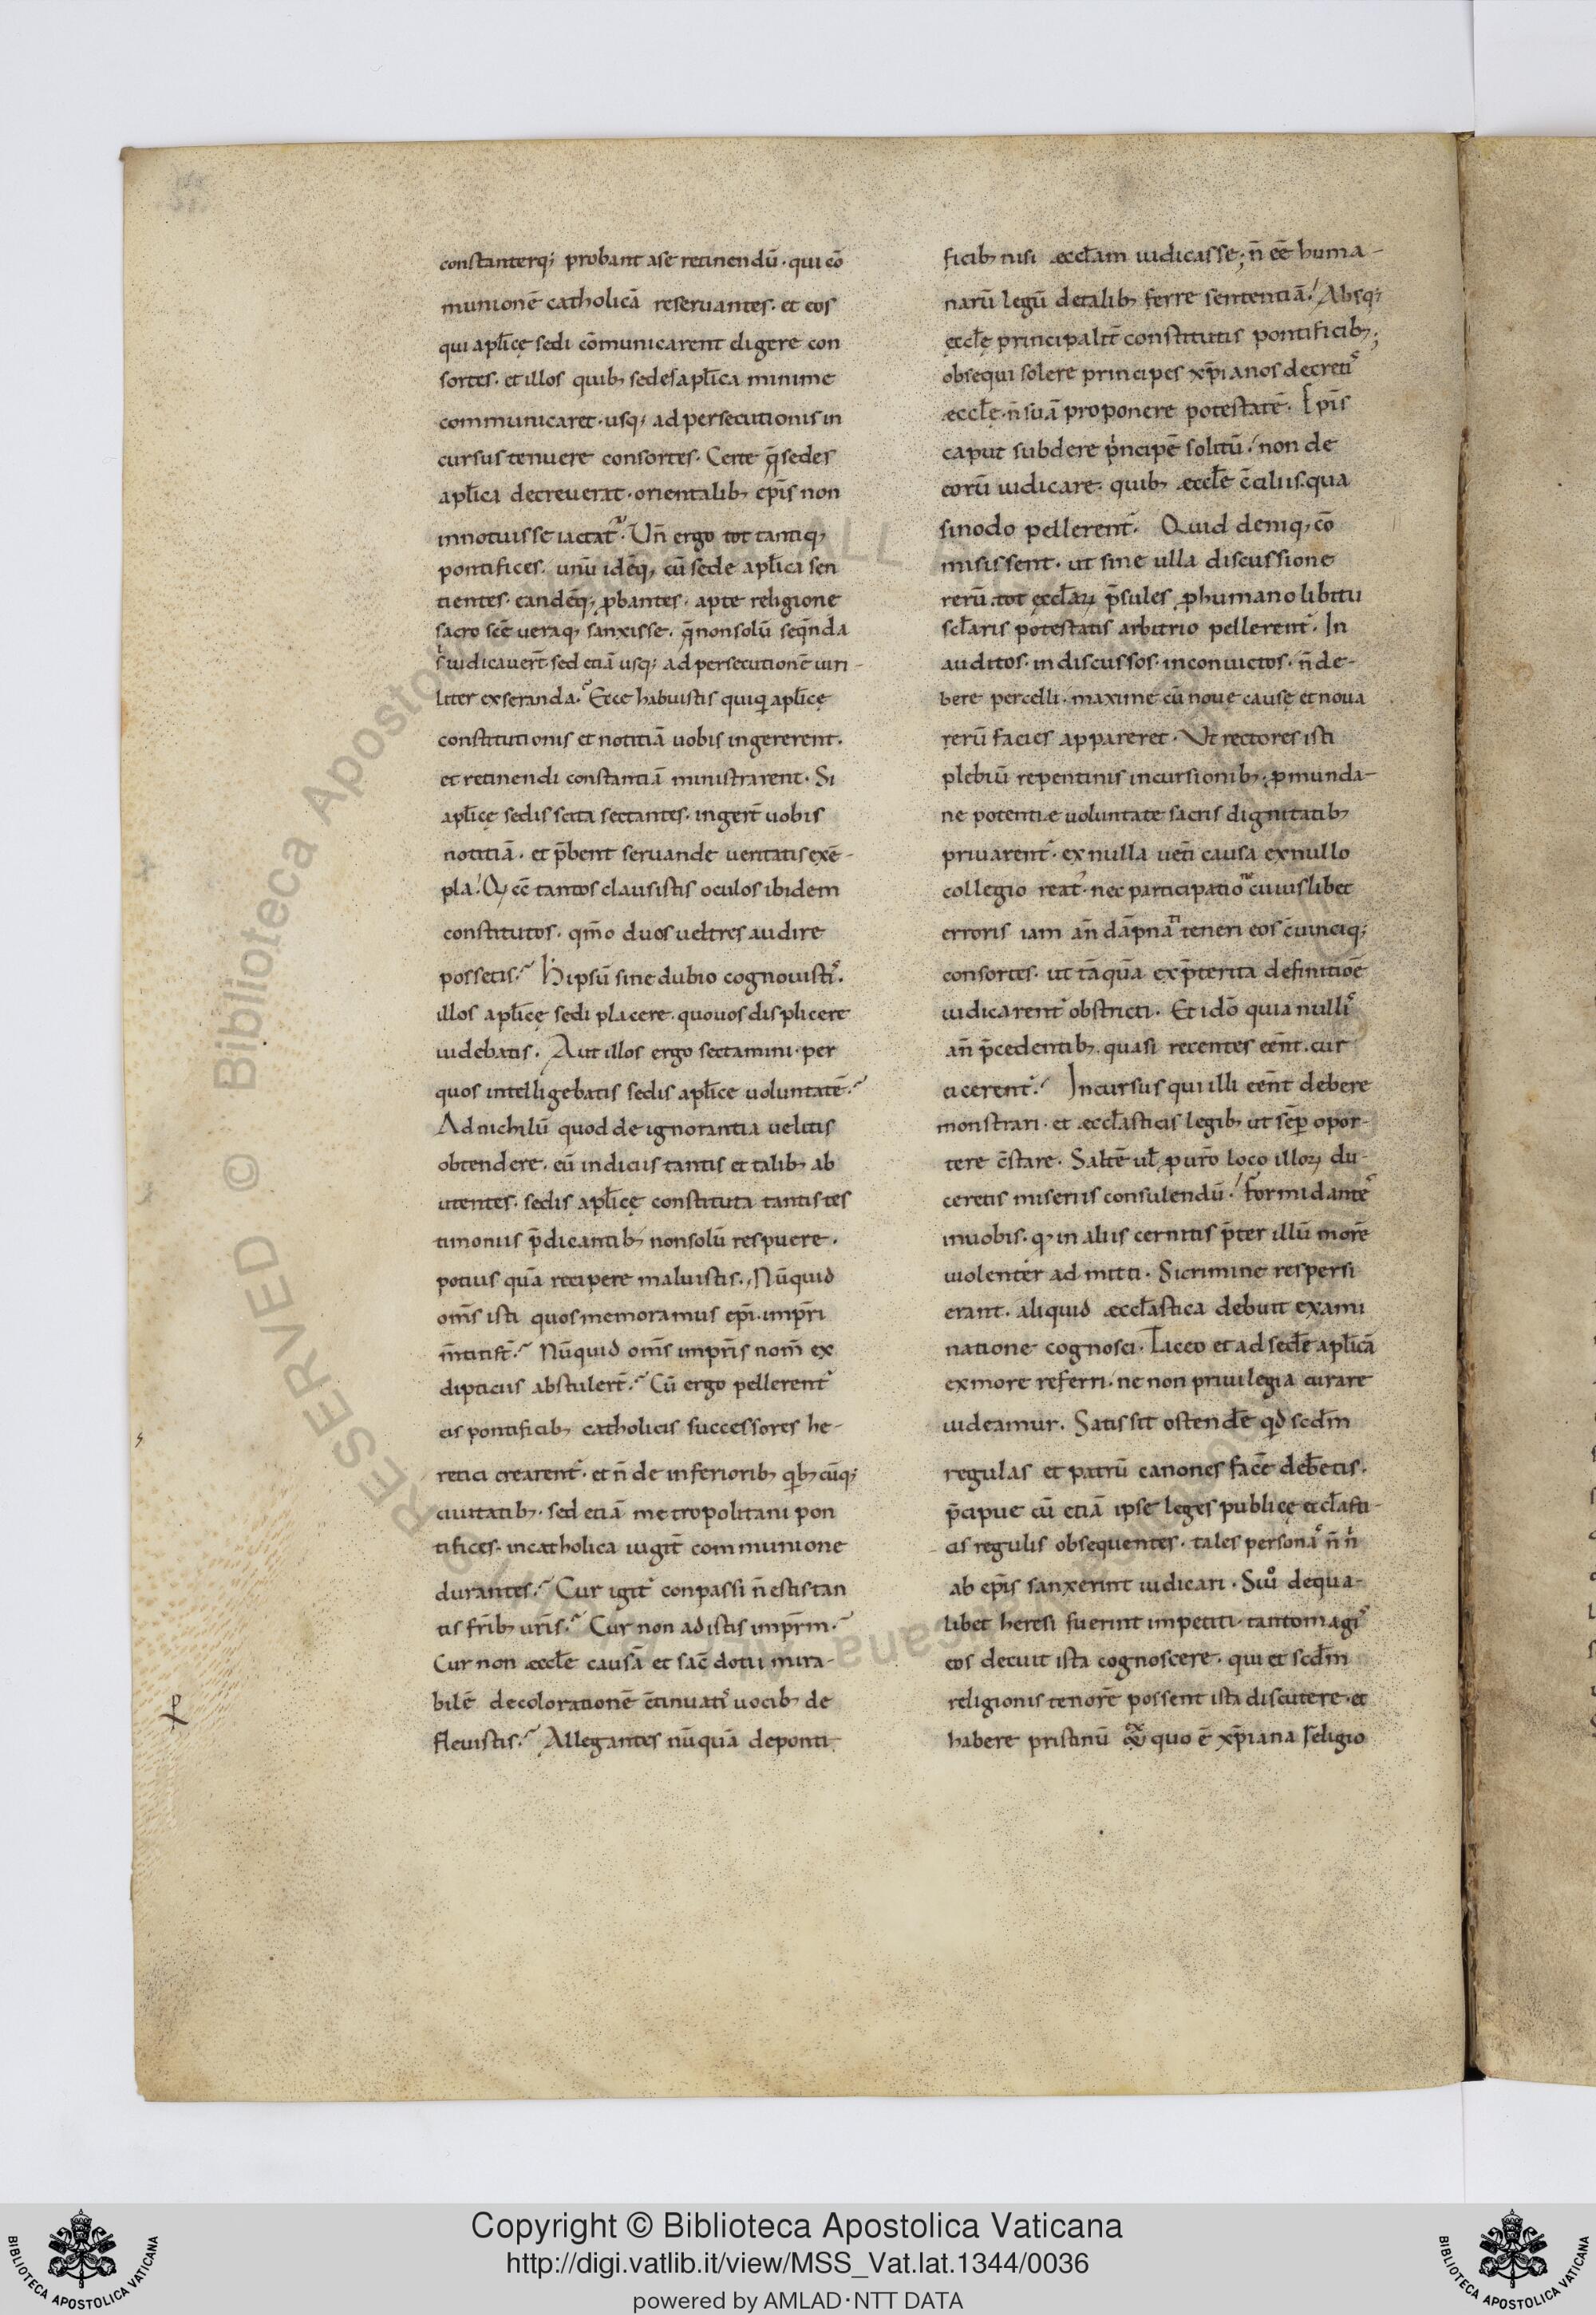 constanterq; probant ase retinendū · qui cō
munionē catholicā reseruantes · et eos
qui apl̄icę sedi cōmunicarent eligere con
sortes · et illos quib; sedes apl̄ica minime
communicaret · usq; ad persecutionis in
cursus tenuere consortes · Certe q̄ sedes
apl̄ica decreuerat · orientalib; ep̄is non
innotuisse iactat᷑ · Un̄ ergo tot tantiq;
pontifices · unū idēq; cū sede apl̄ica sen
tientes · eandēq; ꝓbantes · apte religione
sacro scē ueraq; sanxisse · q̄ non solū seq̄nda
iudicauer̄t sed etiā usq; ad persecutionē uiri-
liter exseranda · Ecce habuistis quiq; apl̄icę
constitutionis et notitiā uobis ingererent ·
et retinendi constantiā ministrarent · Si
apl̄icę sedis scita sectantes · ingerer̄t uobis
notitiā · et p̄bent seruande ueritatis exē-
pla · Qͥ cc̄ tantos clausistis oculos ibidem
constitutos · qm̄o duos ueltres audire
possetis · Hͥ ipsū sine dubio cognouistiˢ ·
illos apl̄icę sedi placere · quo uos displicere
uidebatis · Aut illos ergo sectamini · per
quos intelligebatis sedis apl̄ice uoluntatē ·
Ad nichilū quod de ignorantia uelitis
obtendere · cū indiciis tantis et talib; ab
utentes · sedis apl̄icę constituta tantis tes
timoniis p̄dicantib; non solū respuere ·
potius quā recipere maluistis · Nūquid
om̄s isti quos memoramus ep̄i · imp̄ri
m̄titist̄ · Nūquid om̄s imp̄ris nom̄ ex
dipticiis abstuler̄t · Cū ergo pellerent᷑
eis pontificib; catholicis successores he-
retici crearent᷑ · et n̄ de inferiorib; qͥb; cūq;
ciuitatib; · sed etiā metropolitani pon
tifices · in catholica iugit̄ communione
durantes · Cur igit᷑ conpassi n̄ estis tan
tis fr̄ib; ur̄is · Cur non adistis imp̄rm ·
Cur non æccl̄e causā et sac̄dotū mira-
bilē decolorationē c̄tinuatiˢ uocib; de
fleuistis · Allegantes nūquā deponti
ficib; nisi æccl̄am iudicasse; n̄ eē huma-
narū legū detalib; ferre sententiā · Absq;
ęccl̄ę principalit̄ constitutis pontificib; ·
obsequi solere principes xp̄ianos decretiˢ
æccl̄ę · n̄ suā proponere potestatē · Ep̄is
caput subdere pͥncipē solitū · non de
eorū iudicare · quib; æccl̄e c̄ciliis · qua
sinodo pellerent᷑ · Quid deniq; cō
misissent · ut sine ulla discussione
rerū tot ęccl̄aꝝ p̄sules ꝓ humano libitu
sēl̄aris potestatis arbitrio pellerent᷑ · In
auditos · indiscussos · inconuictos · n̄ de-
bere percelli · maxime cū noue causę et noua
rerū facies appareret · Ut rectores isti
plebiū repentinis incursionib; · ꝓ munda-
ne potentiæ uoluntate sacris dignitatib;
priuarent᷑ · ex nulla uet̄i causa ex nullo
collegio reat᷑ · nec participatio cuiuslibet
erroris iam an̄ dāpna teneri eos c̄uinciq;
consortes · ut tāquā ex p̄terita definitioē
iudicarent᷑ obstricti · Et idō quia nulliˢ
an̄ p̄cedentib; · quasi recentes eēnt · cur
eicerent᷑ · Incursus qui illi eēnt debere
monstrari · et æccl̄asticis legib; ut sēp opor-
tere c̄stare · Saltē ul̄ ꝓ ur̄o loco illoꝝ du-
ceretis miseriis consulendū · formidanteˢ
in uobis · q; in aliis cernitis p̄ter illū morē
uiolenter admitti · Si crimine respersi
erant · aliquid æccl̄astica debuit exami
natione cognosci · Liceo et ad sedē apl̄icā
ex more referri · ne non priuilegia curare
uideamur · Satis sit ostendē qd̄ scd̄m
regulas et patrū canones facē debetis ·
p̄cipue cū etiā ipse leges publicę eccl̄asti-
cis regulis obsequentes · tales personaˢ n̄ nͥ
ab ep̄is sanxerint iudicari · Siu° dequa-
libet heresi fuerint impetiti · tanto magiˢ
eos decuit ista cognoscere · qui et scd̄m
religionis tenorē possent ista discutere · et
habere pristinū ex quo ē xp̄iana religio
Copyright © Biblioteca Apostolica Vaticana
http://digi.vatlib.it/view/MSS_Vat.lat.1344/0036
powered by AMLAD·NTT DATA